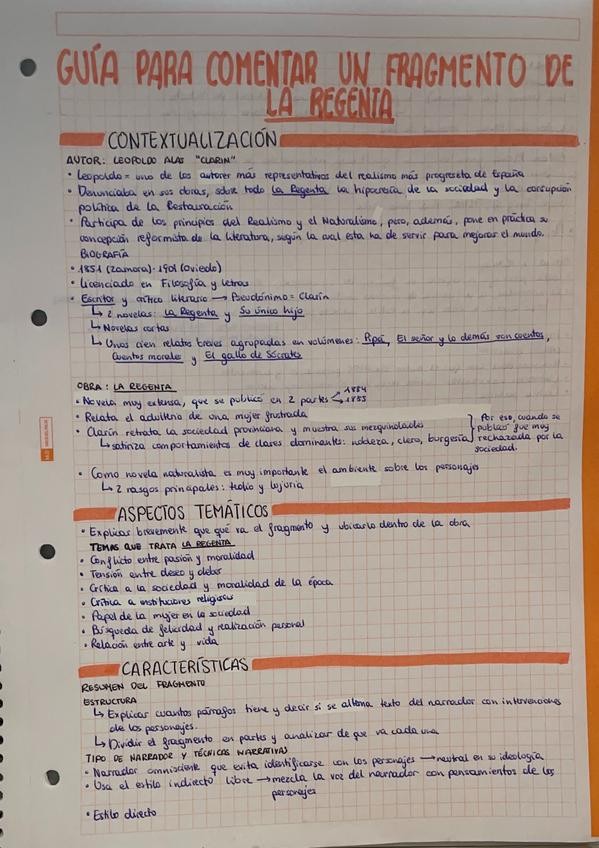 GUÍA PARA COMENTAR UN FRAGMENTO DE
LA REGENTA
CONTEXTUALIZACIÓN
AUTOR: LEOPOLDO ALAS "CLARIN"
• Leopoldo = uno de los autores más representativos del realismo más progresista de España
• Denunciaba en sus obras, sobre todo La Regenta la hipocresía de la sociedad y la corrupción
política de la Restauración
• Participa de los principios del Realismo y el Naturalismo, pero, además, pone en práctica su
concepción reformista de la literatura, según la cual esta ha de servir para mejorar el mundo.
BIOGRAFÍA
• 1851 (Zamora) - 1901 (Oviedo)
• Licenciado en Filosofía y Letras
• Escritor y crítico literario → Pseudónimo = Clarín
↳ 2 novelas: La Regenta y Su único hijo
↳ Novelas cortas
↳ Unos cien relatos breves agrupados en volúmenes: Pipá, El señor y lo demás son cuentos,
Cuentos morales y El gallo de Sócrates
OBRA: LA REGENTA
• Novela muy extensa, que se publicó en 2 partes → 1884
→ 1885
• Relata el adulterio de una mujer frustrada
• Clarín retrata la sociedad provinciana y muestra sus mezquindades
↳ satiriza comportamientos de clases dominantes: nobleza, clero, burgesía
Por eso, cuando se
publicó fue muy
rechazada por la
sociedad.
• Como novela naturalista es muy importante el ambiente sobre los personajes
↳ 2 rasgos principales: tedio y lujuria
ASPECTOS TEMÁTICOS
• Explicar brevemente que qué va el fragmento y ubicarlo dentro de la obra
TEMAS QUE TRATA LA REGENTA
• Conflicto entre pasión y moralidad
• Tensión entre deseo y deber
• Crítica a la sociedad y moralidad de la época
• Crítica a instituciones religiosas
• Papel de la mujer en la sociedad
• Búsqueda de felicidad y realización personal
• Relación entre arte y vida
CARACTERÍSTICAS
RESUMEN DEL FRAGMENTO
ESTRUCTURA
↳ Explicar cuantos párrafos tiene y decir si se alterna texto del narrador con intervenciones
de los personajes.
↳ Dividir el fragmento en partes y analizar de que va cada una
TIPO DE NARRADOR Y TÉCNICAS NARRATIVAS
• Narrador omnisciente que evita identificarse con los personajes → neutral en su ideología
• Usa el estilo indirecto libre → mezcla la voz del narrador con pensamientos de los
personajes
• Estilo directo